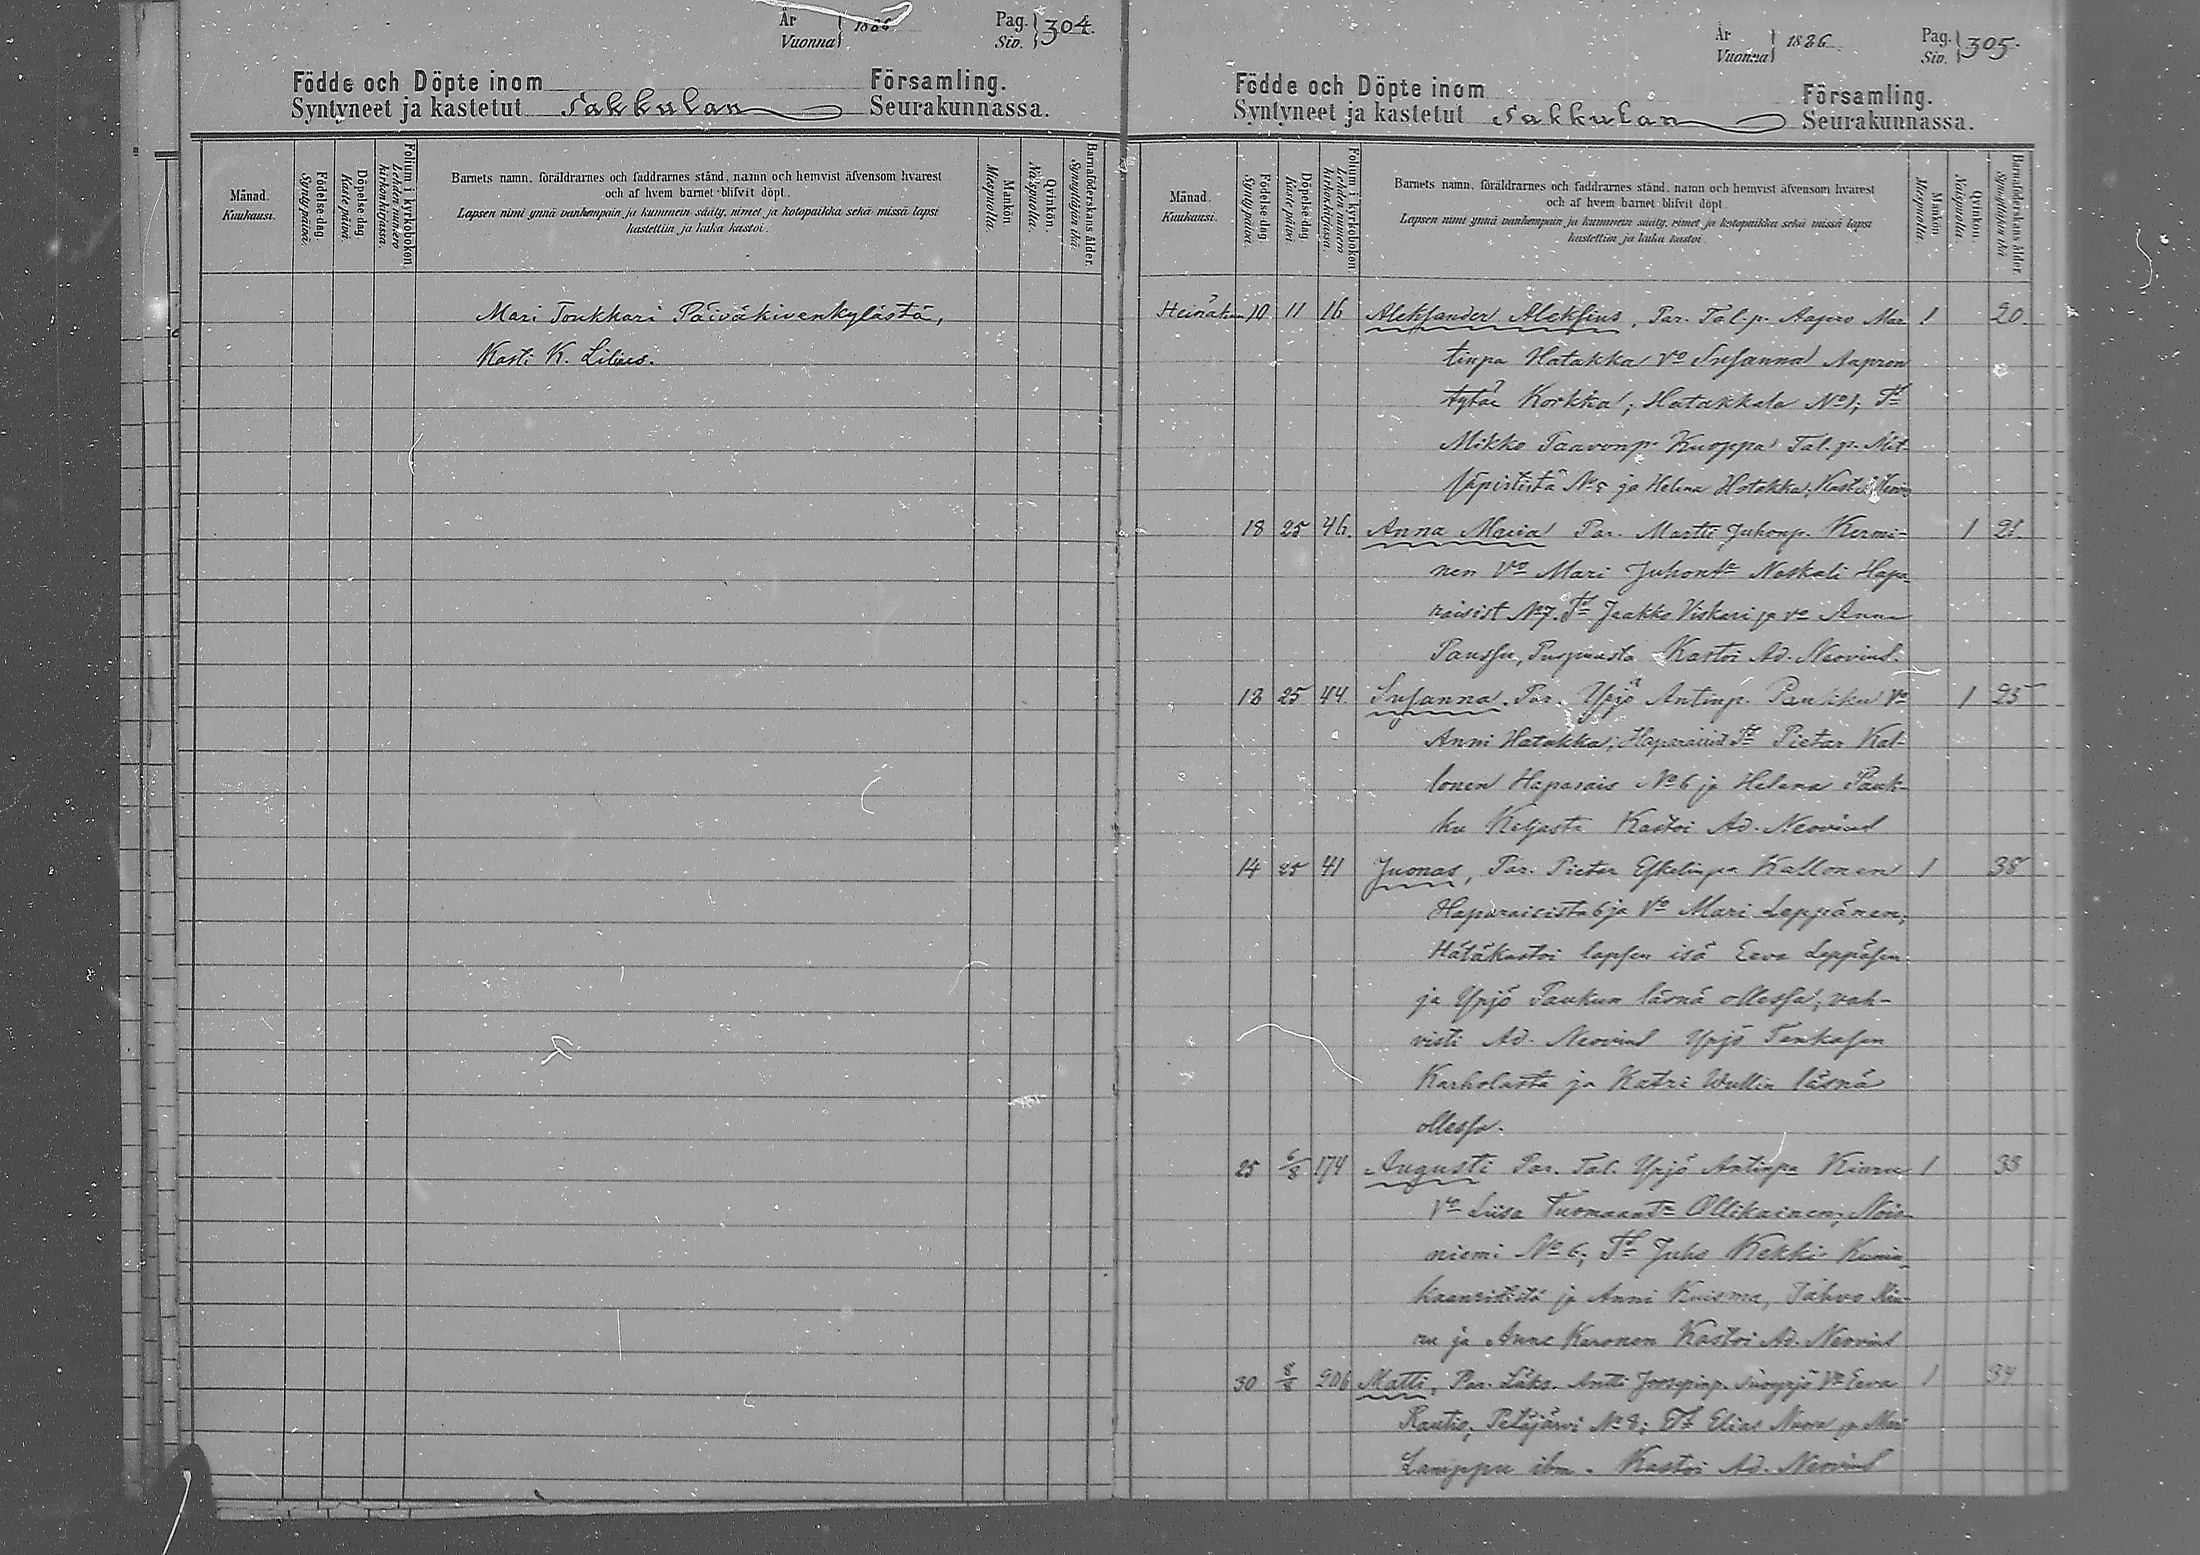 År
Vuonna 1886.
Pag.
Siv. 304.
Födde och Döpte inom Församling.
Syntyneet ja kastetut Sakkulan Seurakunnassa.
Månad.
Kuukausi.
Födelse-dag.
Synty-päivä.
Döpelse-dag.
Kaste-päivä.
Folium i kyrkoboken
Lehden numero kirkonkirjassa.
Barnets namn, föräldrarnes och faddrarnes stånd, namn och hemvist äfvensom hvarest
och af hvem barnet blifvit döpt.
Lapsen nimi ynnä vanhempain ja kummein sääty, nimet ja kotopaikka sekä missä lapsi
kastettiin ja kuka kastoi.
Mankön.
Miespuolia.
Qvinkön.
Naispuolia.
Barnaföderskans ålder.
Synnyttäjän ikä.
Mari Toukkari Päiväkivenkylästä,
Kasti K. Lilius.
År
Vuonna 1886.
Pag.
Siv. 305.
Födde och Döpte inom Församling.
Syntyneet ja kastetut Sakkulan Seurakunnassa.
Månad.
Kuukausi.
Födelse-dag
Synty-päivä.
Döpelse-dag
Kaste-päivä
Folium i kyrkoboken
Lehden numero kirkonkirjassa.
Barnets namn, föräldrarnes och faddrarnes stånd, namn och hemvist äfvensom hvarest
och af hvem barnet blifvit döpt
Lapsen nimi ynnä vanhempain ja kummein sääty, nimet ja kotopaikka sekä missä lapsi
kastettiin ja kuka kastoi.
Mankön
Miespuolia
Qvinkön.
Naispuolia.
Barnaföderskans ålder.
Synnyttäjän ikä
Heinäk. 10 11 16 Aleksander Aleksius, Par. Tal.p. Aapro Mar 1 20
tinpa Hatakka Vo Susanna Aapron
tytär Korkka; Hatakkala No 1; Tt
Mikko Taavonp. Kuoppa Tal. p. Mit-
säpirtistä No 5 ja Helena Hatakka, Kast.
18 25 46. Anna Maria Par. Martti Juhonp. Kermi= 1 21.
nen Vo Mari Juhont. Naskali Hapa-
raisist No 7. Tt Jaakko Viskari ja vo Anna
Paussu, Kastoi Ad. Neovius.
12 25 44. Susanna. Par. Yrjö Antinp. Paukku Vo 1 25
Anni Hatakka; Haparaisist Tt Pietar Kal-
lonen Haparais No 6 ja Helena Pauk-
ku Keljasta Kastoi Ad. Neovius
14 25 41 Juonas, Par. Pietar Eskelinpa Kallonen 1 38
Haparaisista 6 ja Vo Mari Leppänen;
Hätäkastoi lapsen isä Eeva Leppäsen
ja Yrjö Paukun läsnä ollessa; vah-
visti Ad. Neovius Yrjö Tenkasen
Karholasta ja Katri Wullin läsnä
ollessa.
25 6/8 174 Augusti Par. Tal. Yrjö Antinpa Kiuru 1 33
Vo Liisa Tuomaant. Ollikainen, Nois-
niemi No 6; Tt Juho Kekki
ja Anni Kuisma, Pahvo Kiu-
ru ja Anna Karonen Kastoi Ad. Neovius
30 8/8 206 Matti, Par. Läks. Antti Joosepinp. Vo Eeva 1 34
Rautio, Petäjärvi No 8; Tt Elias ja Mari
Lamppu ibm. Kastoi Ad. Neovius